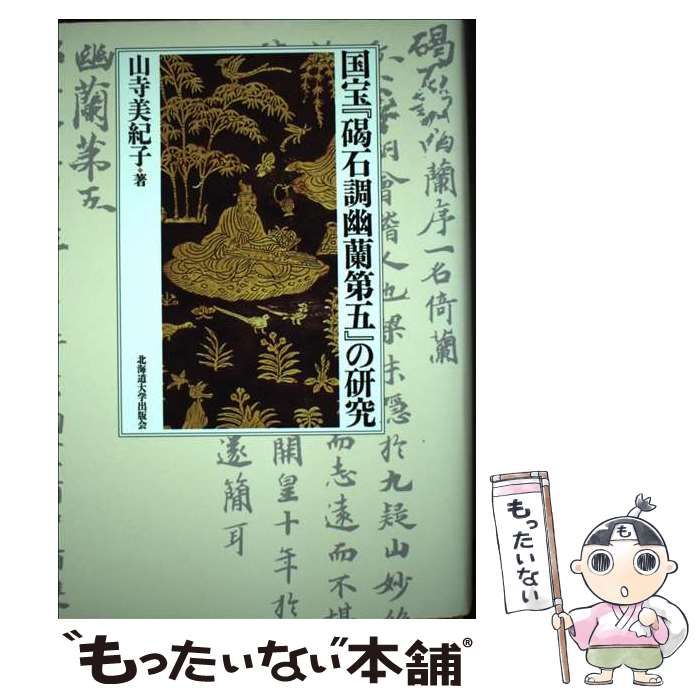 国宝『碣石調幽蘭第五』の研究
山寺美紀子・著
北海道大学出版会
幽蘭序一名倚蘭
會稽人也梁末隠於九疑山妙絶
而志遠而不堪
開皇十年於
遂簡耳
幽蘭第五
もったいない
も
"もったいない"本舗®